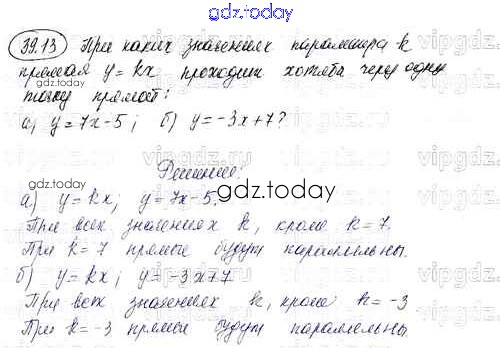 gdz.today
39.13 При каких значениях параметра k
прямая y = kx проходит хотя бы через одну
точку прямой:
а) y = 7x - 5; б) y = -3x + 7?
Решение:
gdz.today
а) y = kx; y = 7x - 5.
При всех значениях k, кроме k = 7.
При k = 7 прямые будут параллельны.
б) y = kx; y = -3x + 7
При всех значениях k, кроме k = -3
При k = -3 прямые будут параллельны
gdz.today